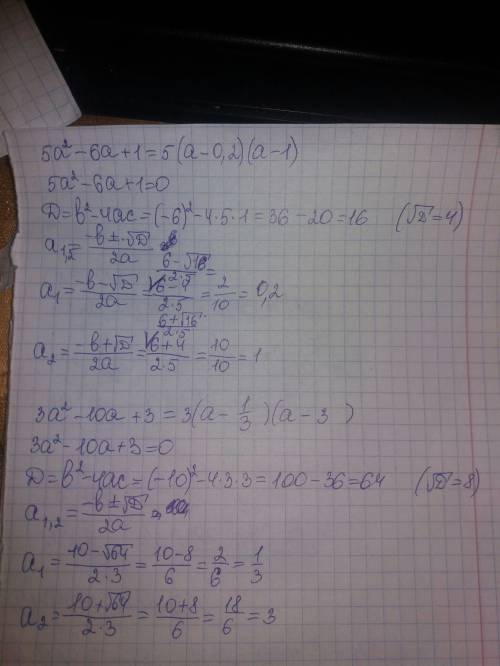 5a²-6a+1=5(a-0,2)(a-1)
5a²-6a+1=0
D=b²-4ac=(-6)²-4·5·1=36-20=16 (√D=4)
a₁,₂=(-b±√D)/2a
(6-√16)/(2·5)=
a₁=(-b-√D)/2a=(6-4)/(2·5)=2/10=0,2
(6+√16)/(2·5)
a₂=(-b+√D)/2a=(6+4)/(2·5)=10/10=1
3a²-10a+3=3(a-1/3)(a-3)
3a²-10a+3=0
D=b²-4ac=(-10)²-4·3·3=100-36=64 (√D=8)
a₁,₂=(-b±√D)/2a
a₁=(10-√64)/(2·3)=(10-8)/6=2/6=1/3
a₂=(10+√64)/(2·3)=(10+8)/6=18/6=3